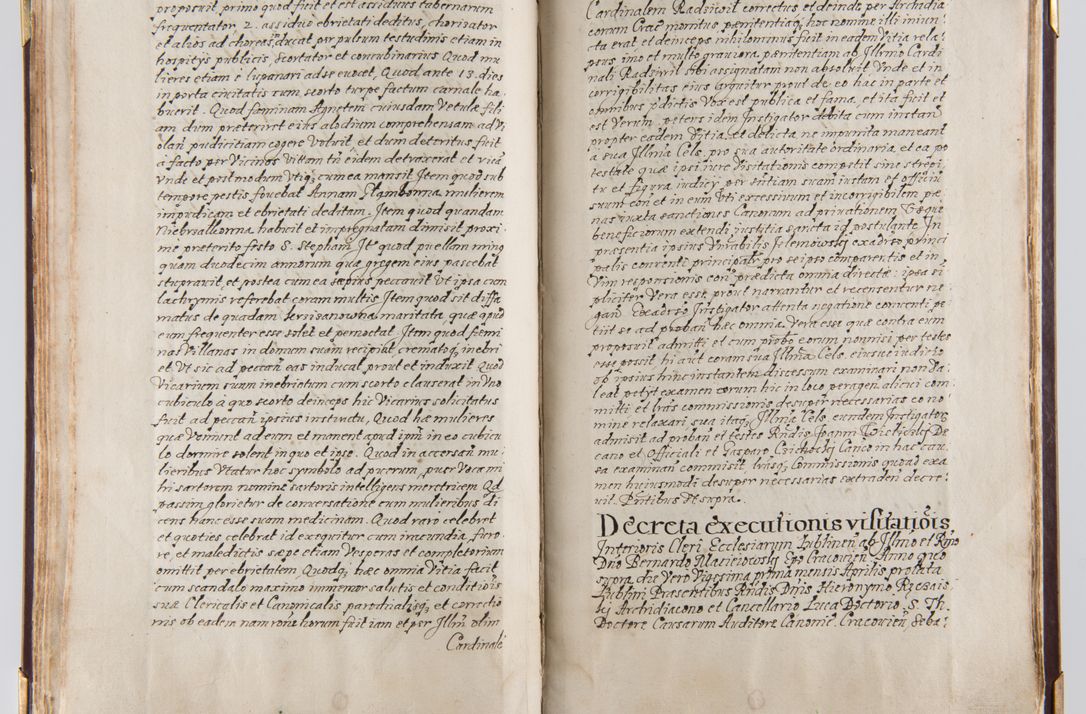 proposuit, primo quod fuit et est assiduus tabernarum
frequentator 2. assiduo ebrietati deditus, chorizator
et alios ad choreas ducat per pulsum testudinis etiam in
hospitijs publicis, scortator et concubinarius Quod mu
lieres etiam è lupanari ad se evocet, Quod ante 13. dies
in porta civitatis cum scorto turpe factum carnale ha
buerit. Quod faminam Agnetem cuiusdam Vetulæ fili
am dum præteriret eius alodium comprehensam ad vi
olan̄ pudicitiam cogere voluit, et dum detentus fuit
à facto per Vicinos vittam tn̄ eidem detraxerat et vica
Unde et postmodum cum ea mansit, Item quod sub
tempore pestis fovebat Annam Stamborna mulierem
impudicam et ebrietati deditam. Item quod quandam
habuit et impregnatam dimisit proxi
me præterito festo S. Stephani, It quod puellam minq
quam duodecim annorum quæ gregem eius pascebat
stupravit, et postea cum ea sæpius peccavit Ut ipsa cum
lachrymis referebat coram multis, Item quod sit diffa
matus de quadam maritata, quæ apud
eum frequenter esse solet et pernoctat, Item quod femi
nas Villanas in domum suam recipiat, crematoq inebri
et Ut sic ad peccan̄ eas inducat prout et induxit, Quod
Vicarium suum inebriatum cum scorto clauserat in Uno
cubiculo à quo scorto deinceps hic Vicarius solicitatus
fuit ad peccan̄ ipsius instinctu, Quod hæ mulieres
quæ Veniunt ad eum et manent apud ipm̄ in eo cubicu
lo dormire solent in quo et ipse. Quod in accersan̄ mu
lieribus Utatur hoc symbolo ad puerum, puer Voca mi
hi sartorem nomine sartoris intelligens meretricem Qd
passim glorietur de conversatione cum mulieribus di
cens hanc esse suam medicinam. Quod raro celebret
et quoties celebrat id exequitur cum iracundia, furo
re, et maledictis sæpe etiam Vesperas et completorium
omittit per ebrietatem Quodq hæc omnia Vitia facit
cum scandalo maximo immemor salutis et conditiōis
suæ Clericalis et Canonicalis parochialisq, et correctio
nis ob eadem nam rone horum fuit iam et per Illm̄ olim
Cardinalē
Cardinalem Radziwil correctus et deinde per Archidia
conum Crac monitus pænitentiaq, hoc nomine illi iniun
cta erat et deinceps nihilominus fuit in eadem Vitia rela
psus, imo et multo graviora, pænitentiam ab Illmo Cardi
nali Radziwil sibi assignatam non absolvit Unde et in
corrigibilitas eius arguitur prout de eo hac in parte et
omnibus p̄dictis Vox est publica et fama, et ita fuit et
est Verum, petens idem Instigator debita cum instan̄
propter eadem Vitia, et delicta ne impunita maneant
à sua Illma Cels. pro sua autoritate ordinaria, et ea po
testate quæ ipsi iure Visitationis competit sine strepi
tu et figura iudicij per sn̄tiam suam iustam et officiū
suum con et in eum Uti excessivum et incorrigibilem pæ
nas iuxta sanctiones Canonum ad privationem Usque
beneficiorum extendi iustitia sancta id postulante, In
præsentia ipsius Vn̄rabilis ex adverso princi
palis conventi principalr̄ pro se ipso comparentis et in
Vim responsionis con̄ prædicta omnia directæ ipsa si
pliciter Vera esse, prout narrantur et recensentur ne
gan̄. Ex adverso Instigator attenta negatione conventi pe
tiit se ad proban̄ hæc omnia. Vera esse quæ contra eum
proposuit admitti et cum probō eorum nonnisi per testes
esse possit hi aut coram sua Illma Cels. eiusve iudicio
ob ipsius hinc instantem discessum examinari non va
leat petijt examen eorum hic in loco peragen̄ alicui com
mitti et lr̄as commissionis desuper necessarias eo no
mine relaxari sua itaq, Illma Cels. eundem Instigator̄
admisit ad proban̄ et testes Rndis Joanni De
cano et Officiali et Gasparo Canco in hac cau
sa examinan̄ commisit lr̄asq, Commissionis quoad exa
men huiusmodi desuper necessarias extraden̄ decre
vit. Pn̄tibus Ut supra.
Decreta executionis visitatiōis
Interioris Cleri Ecclesiarum Lublinen̄ ab Illmo et Rmo
Dno Bernardo Macieiowskj Epo Cracovien̄ Anno quo
supra die Vero Vigesima prima mensis Aprilis prolata
Lublini Præsentibus Rndis Dnis Hieronymo
Archidiacono et Cancellario Luca Doctorio S. Th.
Doctore Causarum Auditore Canonic. Cracovien̄, Seba: